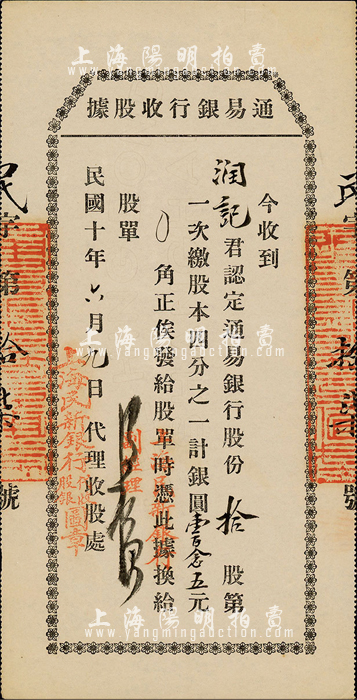 上海陽明拍賣
www.yangmingauction.com
通易銀行收股據
今收到
润記君認定通易銀行股份拾股第
一次繳股本四分之一計銀圓壹百念五元
〇角正俟發給股單時憑此據換給
股單
民國十年六月九日代理收股處
上海民新銀行
股銀匯章
上海民新銀行
副經理
民字第拾柒號
上海陽明拍賣
www.yangmingauction.com